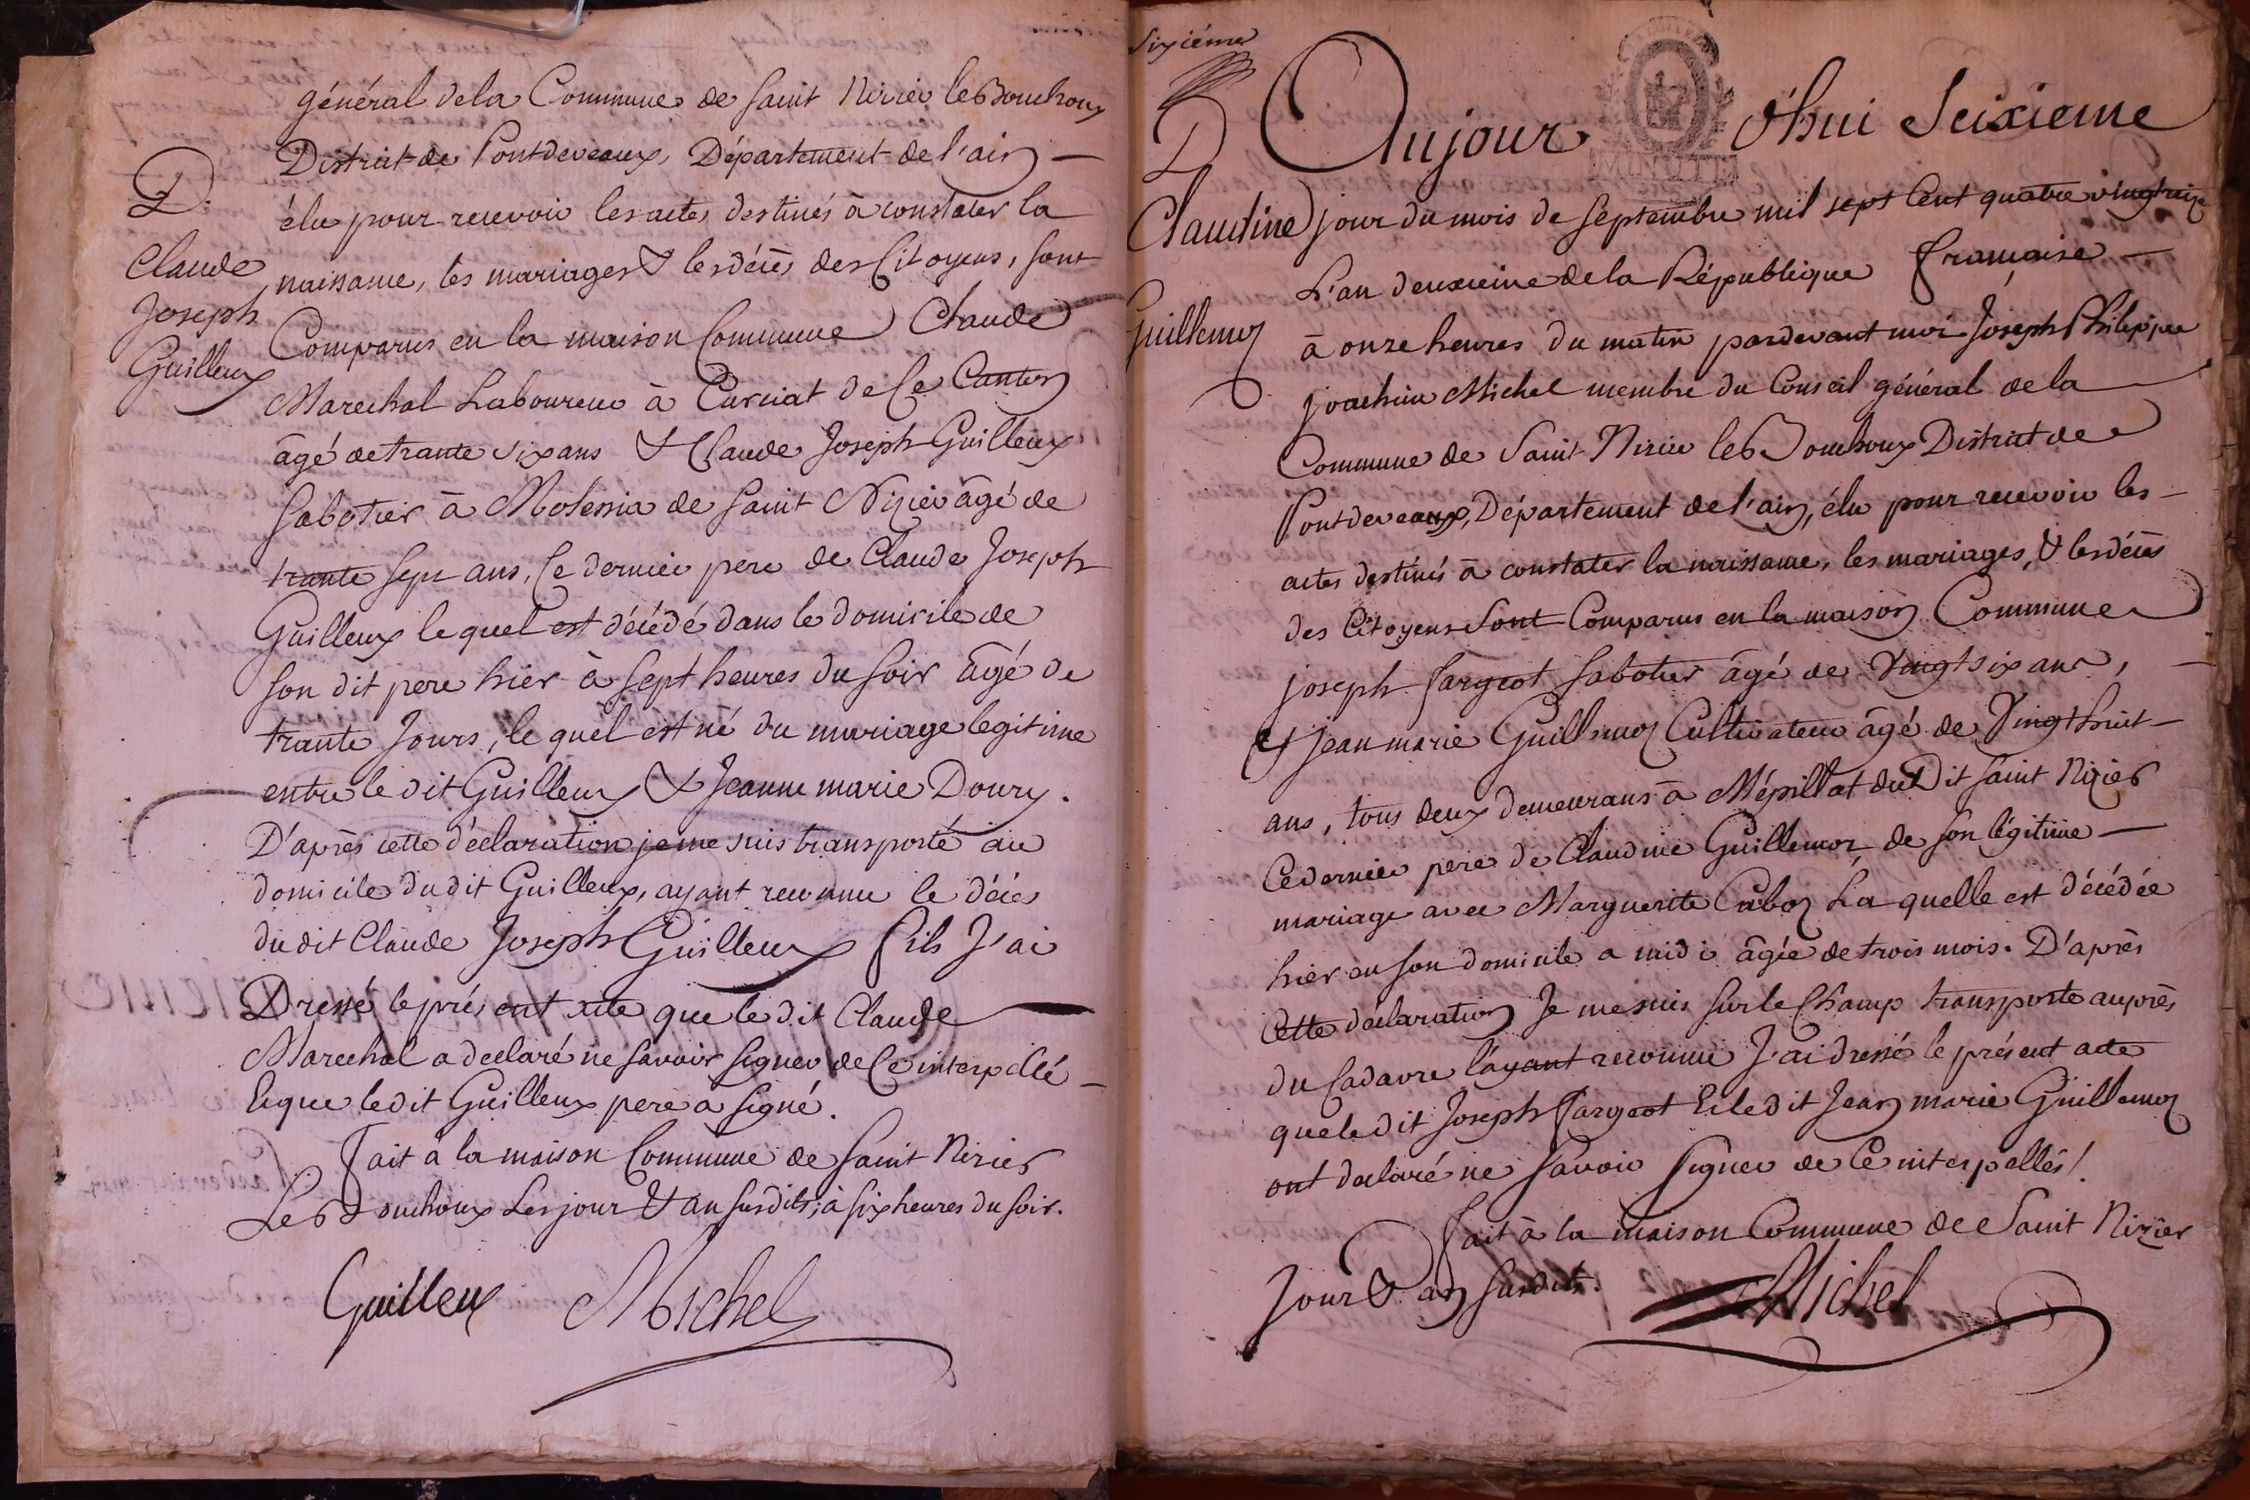 général dela Commune de Saint Nizier leBouchoux
District de Pontdeveaux, Département de l'ain
élu pour recevoir les actes destinés à constater la
naissance, les mariages & les décès des Citoyens, sont
Comparus en la maison Commune Claude
Marechal Laboureur à Curciat de Ce Canton
âgé de trante six ans & Claude Joseph Guilleux
Sabotier à Molessia de Saint Nizier âgé de
trante sept ans, Ce dernier pere de Claude Joseph
Guilleux lequel est décédé dans le domicile de
son dit pere hier à sept heures du soir âgé de
trante Jours, le quel est né du mariage legitime
entre le dit Guilleux & Jeanne marie Doury.
D'après cette déclaration je me suis transporté au
domicile du dit Guilleux, ayant reconnu le décès
du dit Claude Joseph Guilleux fils J'ai
Dressé le présent acte que le dit Claude
Marechal a declaré ne savoir signer de Ce interpellé
Et que le dit Guilleux pere a signé.
Fait à la maison Commune de Saint Nizier
Le Bouchoux Les jour & an susdits, à six heures du soir.
Guilleux Michel
D.
Claude
Joseph
Guilleux
Sixiéme
D
Claudine
Guillemoz
Aujour d'hui Seixieme
jour du mois de Septembre mil sept Cent quatre vingt treize
L'an deuxieme de la République française
à onze heures du matin pardevant moi Joseph Philippe
joachim Michel membre du Conseil général de la
Commune de Saint Nizier leBouchoux District de
Pontdeveaux, Département de l'ain, élu pour recevoir les
actes destinés à constater la naissance, les mariages, & les décès
des Citoyens sont Comparus en la maison Commune
joseph fargeot Sabotier âgé de vingt six ans,
Et jean marie Guillemoz Cultivateur âgé de Vingt huit
ans, tous deux demeurans à Mépillat du Dit Saint Nizier
Ce dernier pere de Claudine Guillemoz de son légitime
mariage avec Marguerite Caboz La quelle est décédée
hier en son domicile a midi âgée de trois mois. D'après
Cette declaration Je me suis sur le Champ transporté auprès
du Cadavre l'ayant reconnu J'ai dressé le présent acte
que le dit Joseph fargeot Et le dit Jean marie Guillemoz
ont declaré ne savoir signer de Ce interpellés!
fait à la maison Commune de Saint Nizier
Jour & an susdits.
Michel